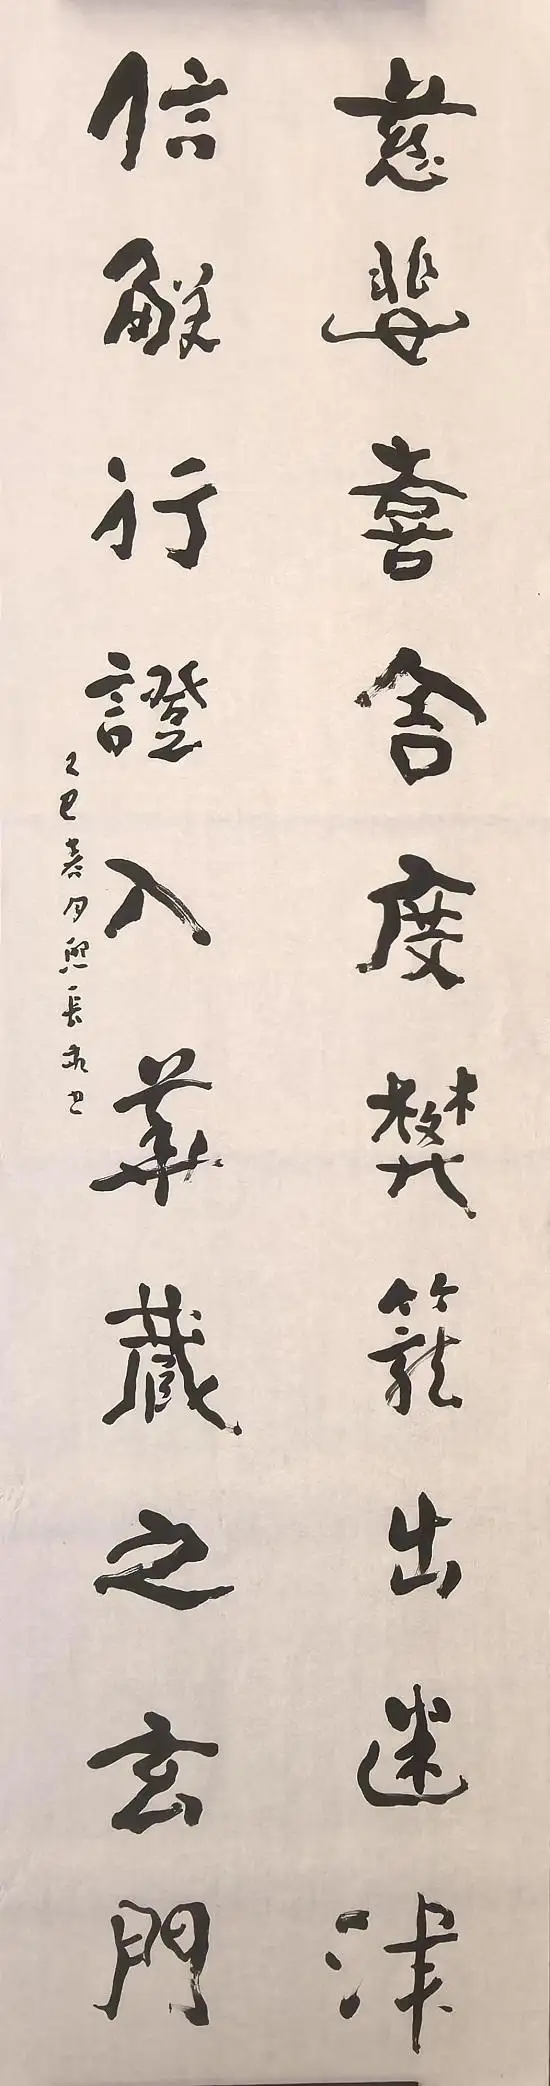 慈悲喜舍度樊籠出迷津
信解行證入華藏之玄門
乙巳春月熙長永书